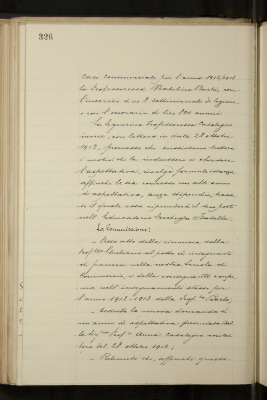 326
corso commerciale per l'anno 1912/1913
la Professoressa
l'incarico di 28 settimanali di lezione
e con l'onorario di lire annue.
La Signorina Professoressa Casalegno
invece, con lettera in data 22 ottobre
1912, premesso che sussistono tuttora
i motivi che la indussero a chiedere
l'aspettativa, inoltrò formale istanza
affinché le sia concesso un altro anno
di aspettativa, senza stipendio,
il quale essa riprenderà il suo posto
nell'Educatorio Duchessa Isabella.
La Commissione:
- Preso atto della rinuncia della
Prof.ssa al posto di insegnante
di francese nella nostra Scuola di
Commercio, e della conseguente
nell'insegnamento stesso per
l'anno 1912-1913 della Prof.ssa
- Veduta la nuova domanda di
un anno di aspettativa presentata dal
la Sig.na Prof.ssa Anna Casalegno con let
tera del 22 ottobre 1912;
- Ritenuto che, affinché questa